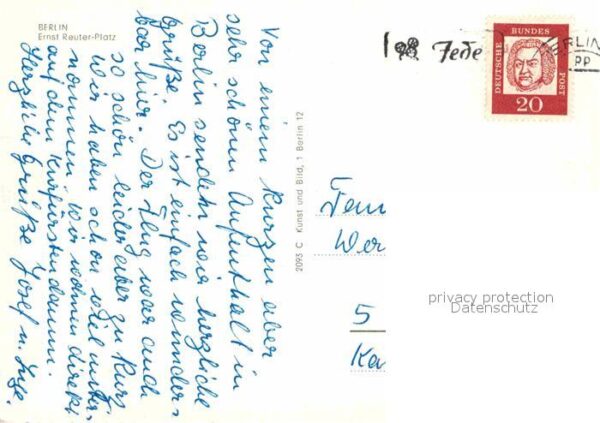 BERLIN
Ernst Reuter-Platz
Von einem kurzen aber
sehr schönen Aufenthalt in
Berlin senden wir herzliche
Grüße. Es ist einfach wunder-
bar hier. Der Flug war auch
so schön leider aber zu kurz
Wir haben schon viel unter-
nommen. Wir wohnen direkt
auf dem Kurfürstendamm.
Herzliche Grüße Josef u. Inge.
2093 C Kunst und Bild, 1 Berlin 12
Jede
DEUTSCHE BUNDES POST
20
BERLIN
PP
Fam
Wer
5
Ka
privacy protection
Datenschutz